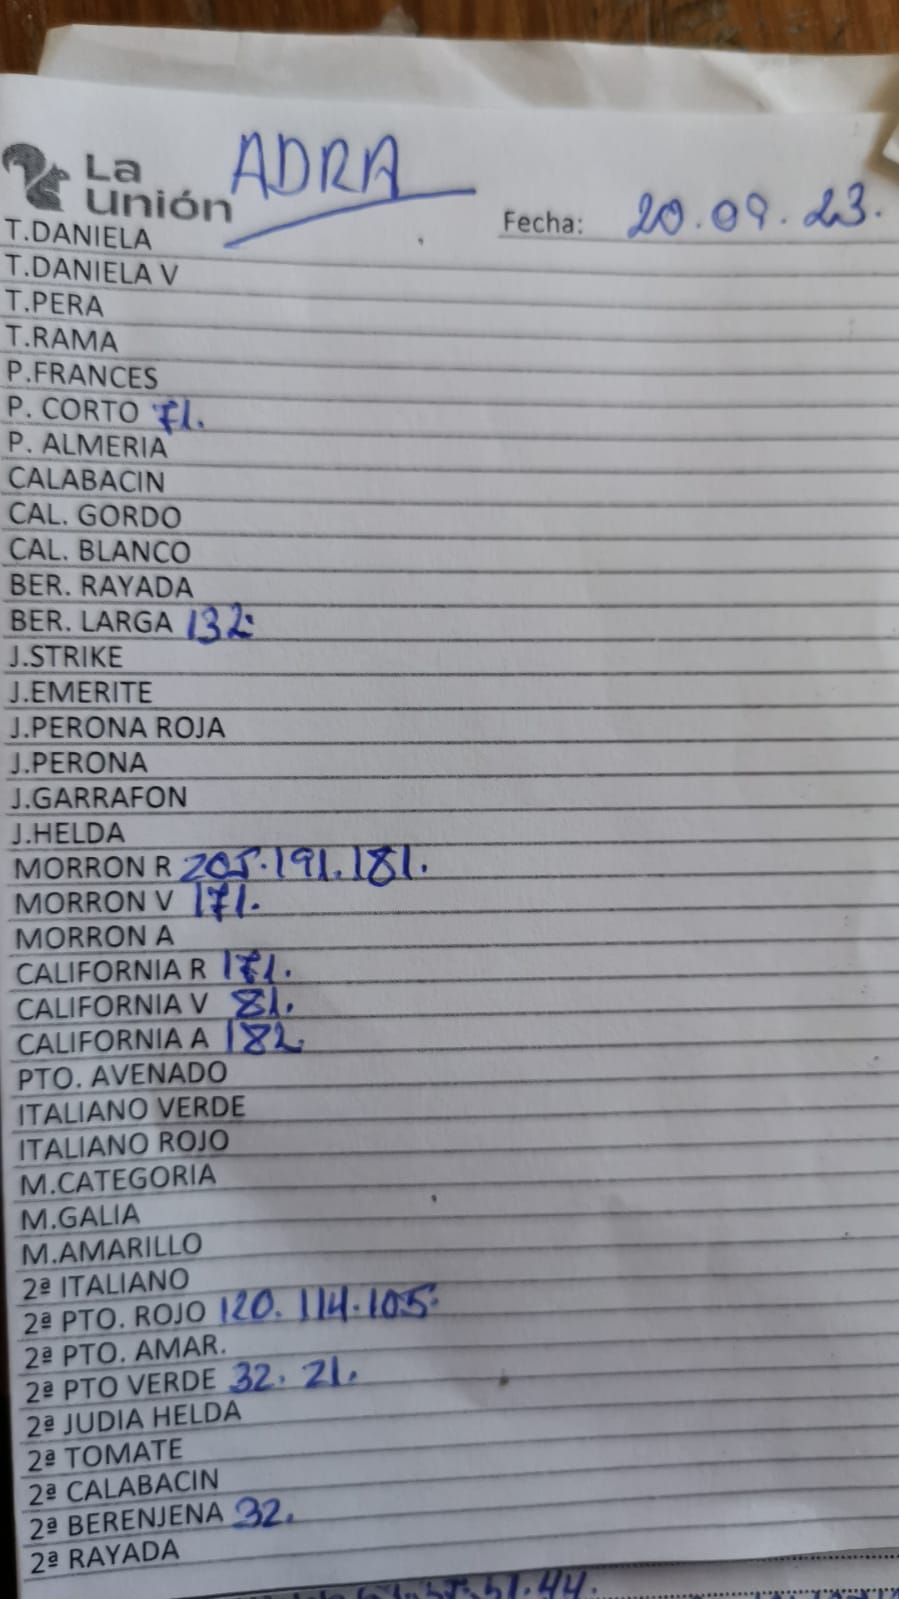 La
Unión
ADRA
Fecha: 20.09.23.
T.DANIELA
T.DANIELA V
T.PERA
T.RAMA
P.FRANCES
P. CORTO 71.
P. ALMERIA
CALABACIN
CAL. GORDO
CAL. BLANCO
BER. RAYADA
BER. LARGA 132.
J.STRIKE
J.EMERITE
J.PERONA ROJA
J.PERONA
J.GARRAFON
J.HELDA
MORRON R 205.191.181.
MORRON V 171.
MORRON A
CALIFORNIA R 171.
CALIFORNIA V 81.
CALIFORNIA A 182
PTO. AVENADO
ITALIANO VERDE
ITALIANO ROJO
M.CATEGORIA
M.GALIA
M.AMARILLO
2ª ITALIANO
2ª PTO. ROJO 120.114.105.
2ª PTO. AMAR.
2ª PTO VERDE 32.21.
2ª JUDIA HELDA
2ª TOMATE
2ª CALABACIN
2ª BERENJENA 32.
2ª RAYADA
51.44.